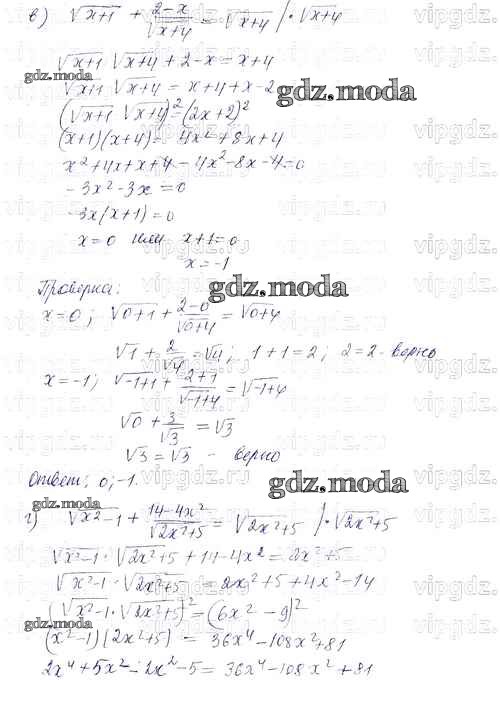 в) √x+1 + 2-x/√x+4 = √x+4 /·√x+4
√x+1 √x+4 + 2-x = x+4
gdz.moda
√x+1 √x+4 = x+4+x-2
gdz.moda
(√x+1 √x+4)² = (2x+2)²
(x+1)(x+4) = 4x²+8x+4
x²+4x+x+4-4x²-8x-4=0
-3x²-3x=0
-3x(x+1)=0
x=0 или x+1=0
x=-1
Проверка:
gdz.moda
x=0; √0+1 + 2-0/√0+4 = √0+4
√1 + 2/√4 = √4; 1+1=2; 2=2 - верно
x=-1; √-1+1 + 2+1/√-1+4 = √-1+4
√0 + 3/√3 = √3
√3 = √3 - верно
Ответ: 0;-1.
gdz.moda
gdz.moda
г) √x²-1 + 14-4x²/√2x²+5 = √2x²+5 /·√2x²+5
√x²-1 · √2x²+5 + 14-4x² = 2x²+5
√x²-1 · √2x²+5 = 2x²+5+4x²-14
(√x²-1 · √2x²+5)² = (6x²-9)²
gdz.moda
(x²-1)(2x²+5) = 36x⁴-108x²+81
2x⁴+5x²-2x²-5 = 36x⁴-108x²+81
vipgdz.ru